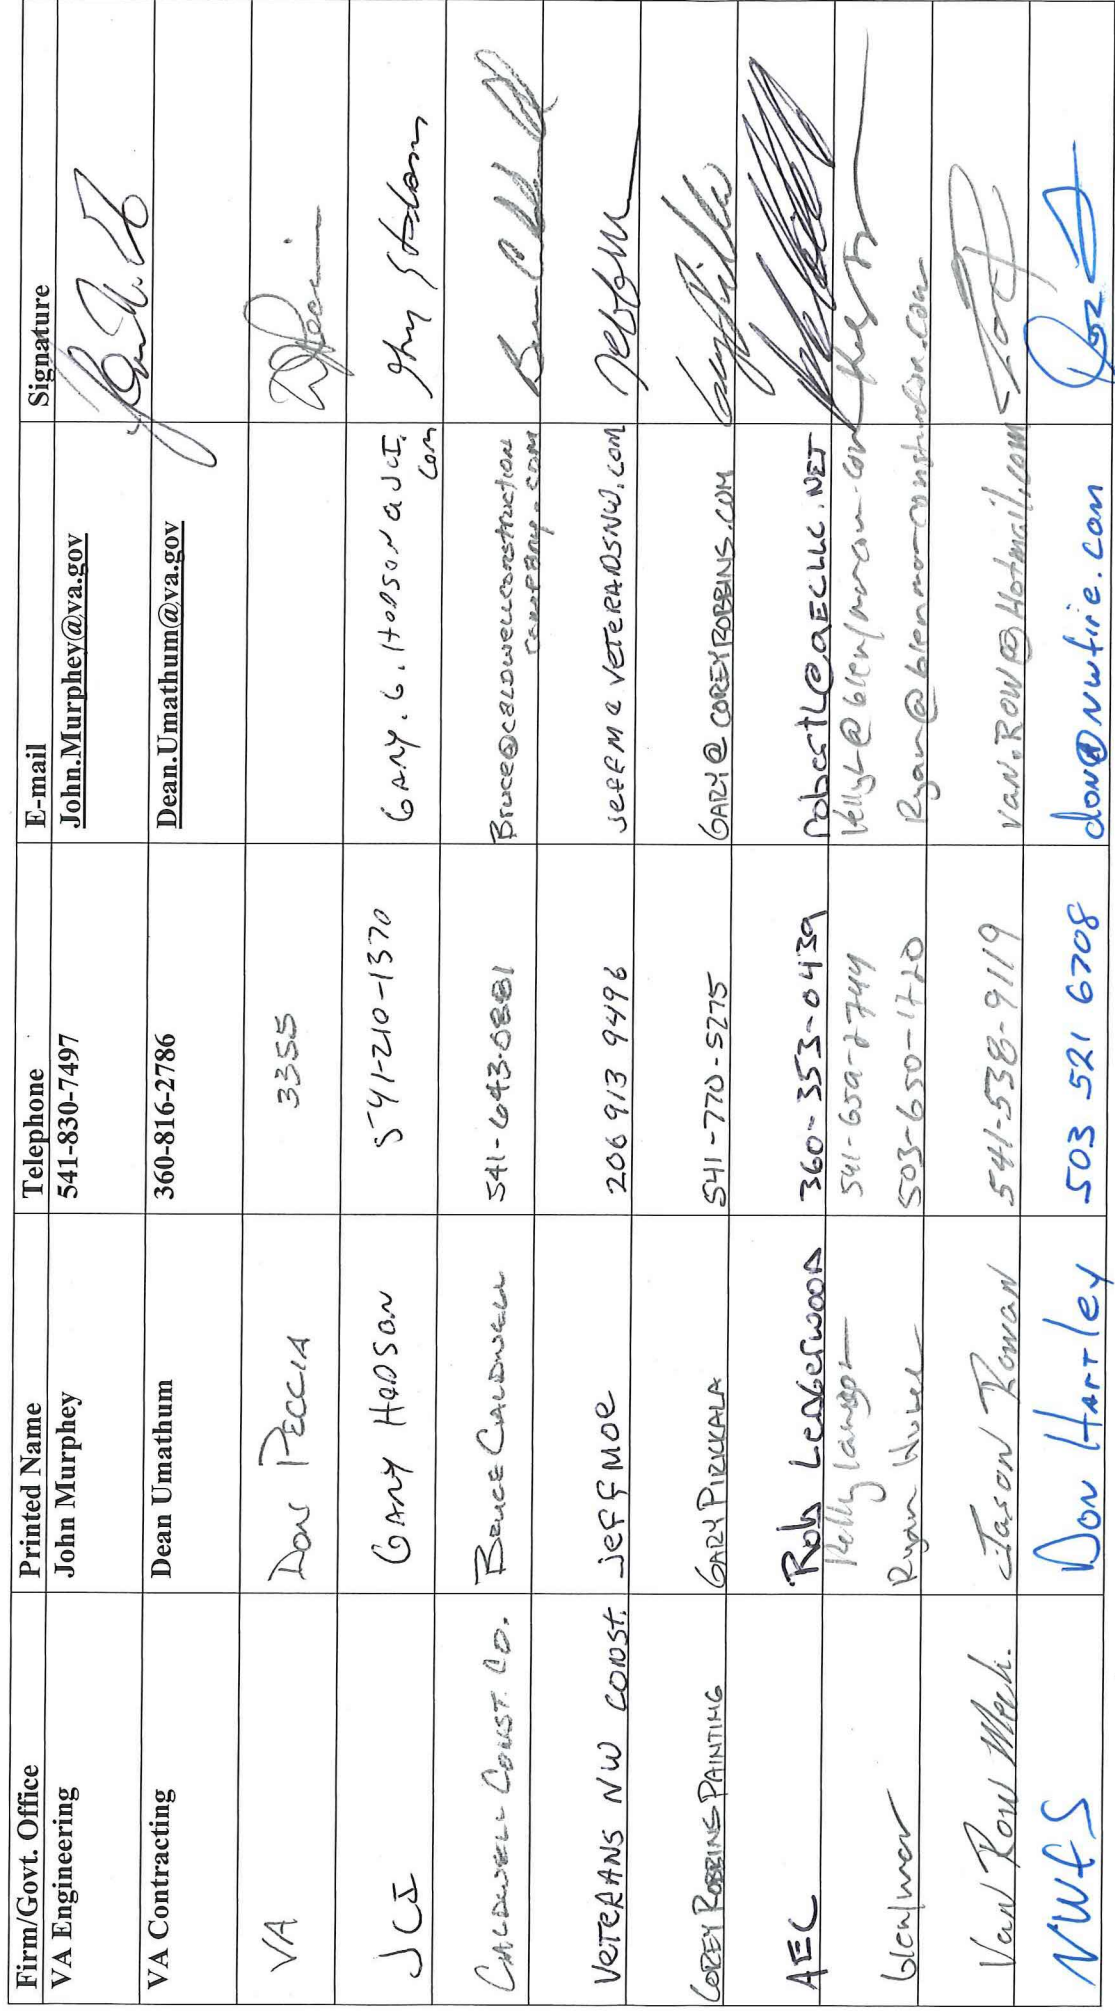 Firm/Govt. Office Printed Name Telephone E-mail Signature
VA Engineering John Murphey 541-830-7497 John.Murphey@va.gov
VA Contracting Dean Umathum 360-816-2786 Dean.Umathum@va.gov
VA Don Peccia 3355
JCI Gary Hodson 541-210-1370 Gary.G.Hodson@JCI.
com
Caldwell Const. Co. Bruce Caldwell 541-643-0881 Bruce@caldwellconstruction
company.com
Veterans NW Const. Jeff Moe 206 913 9496 Jeffm@veteransnw.com
Corey Robbins Painting Gary Pirkkala 541-770-5275 Gary@CoreyRobbins.com
AEC Rob Ledgerwood 360-353-0439 RobertL@AECLLC.NET
Kelly 541-659-2744
Glen/mar Ryan 503-650-1420
Van Row Mech. Jason Rowan 541-538-9119 Van.Row@Hotmail.com
NWFS Don Hartley 503 521 6708 don@nwfire.com